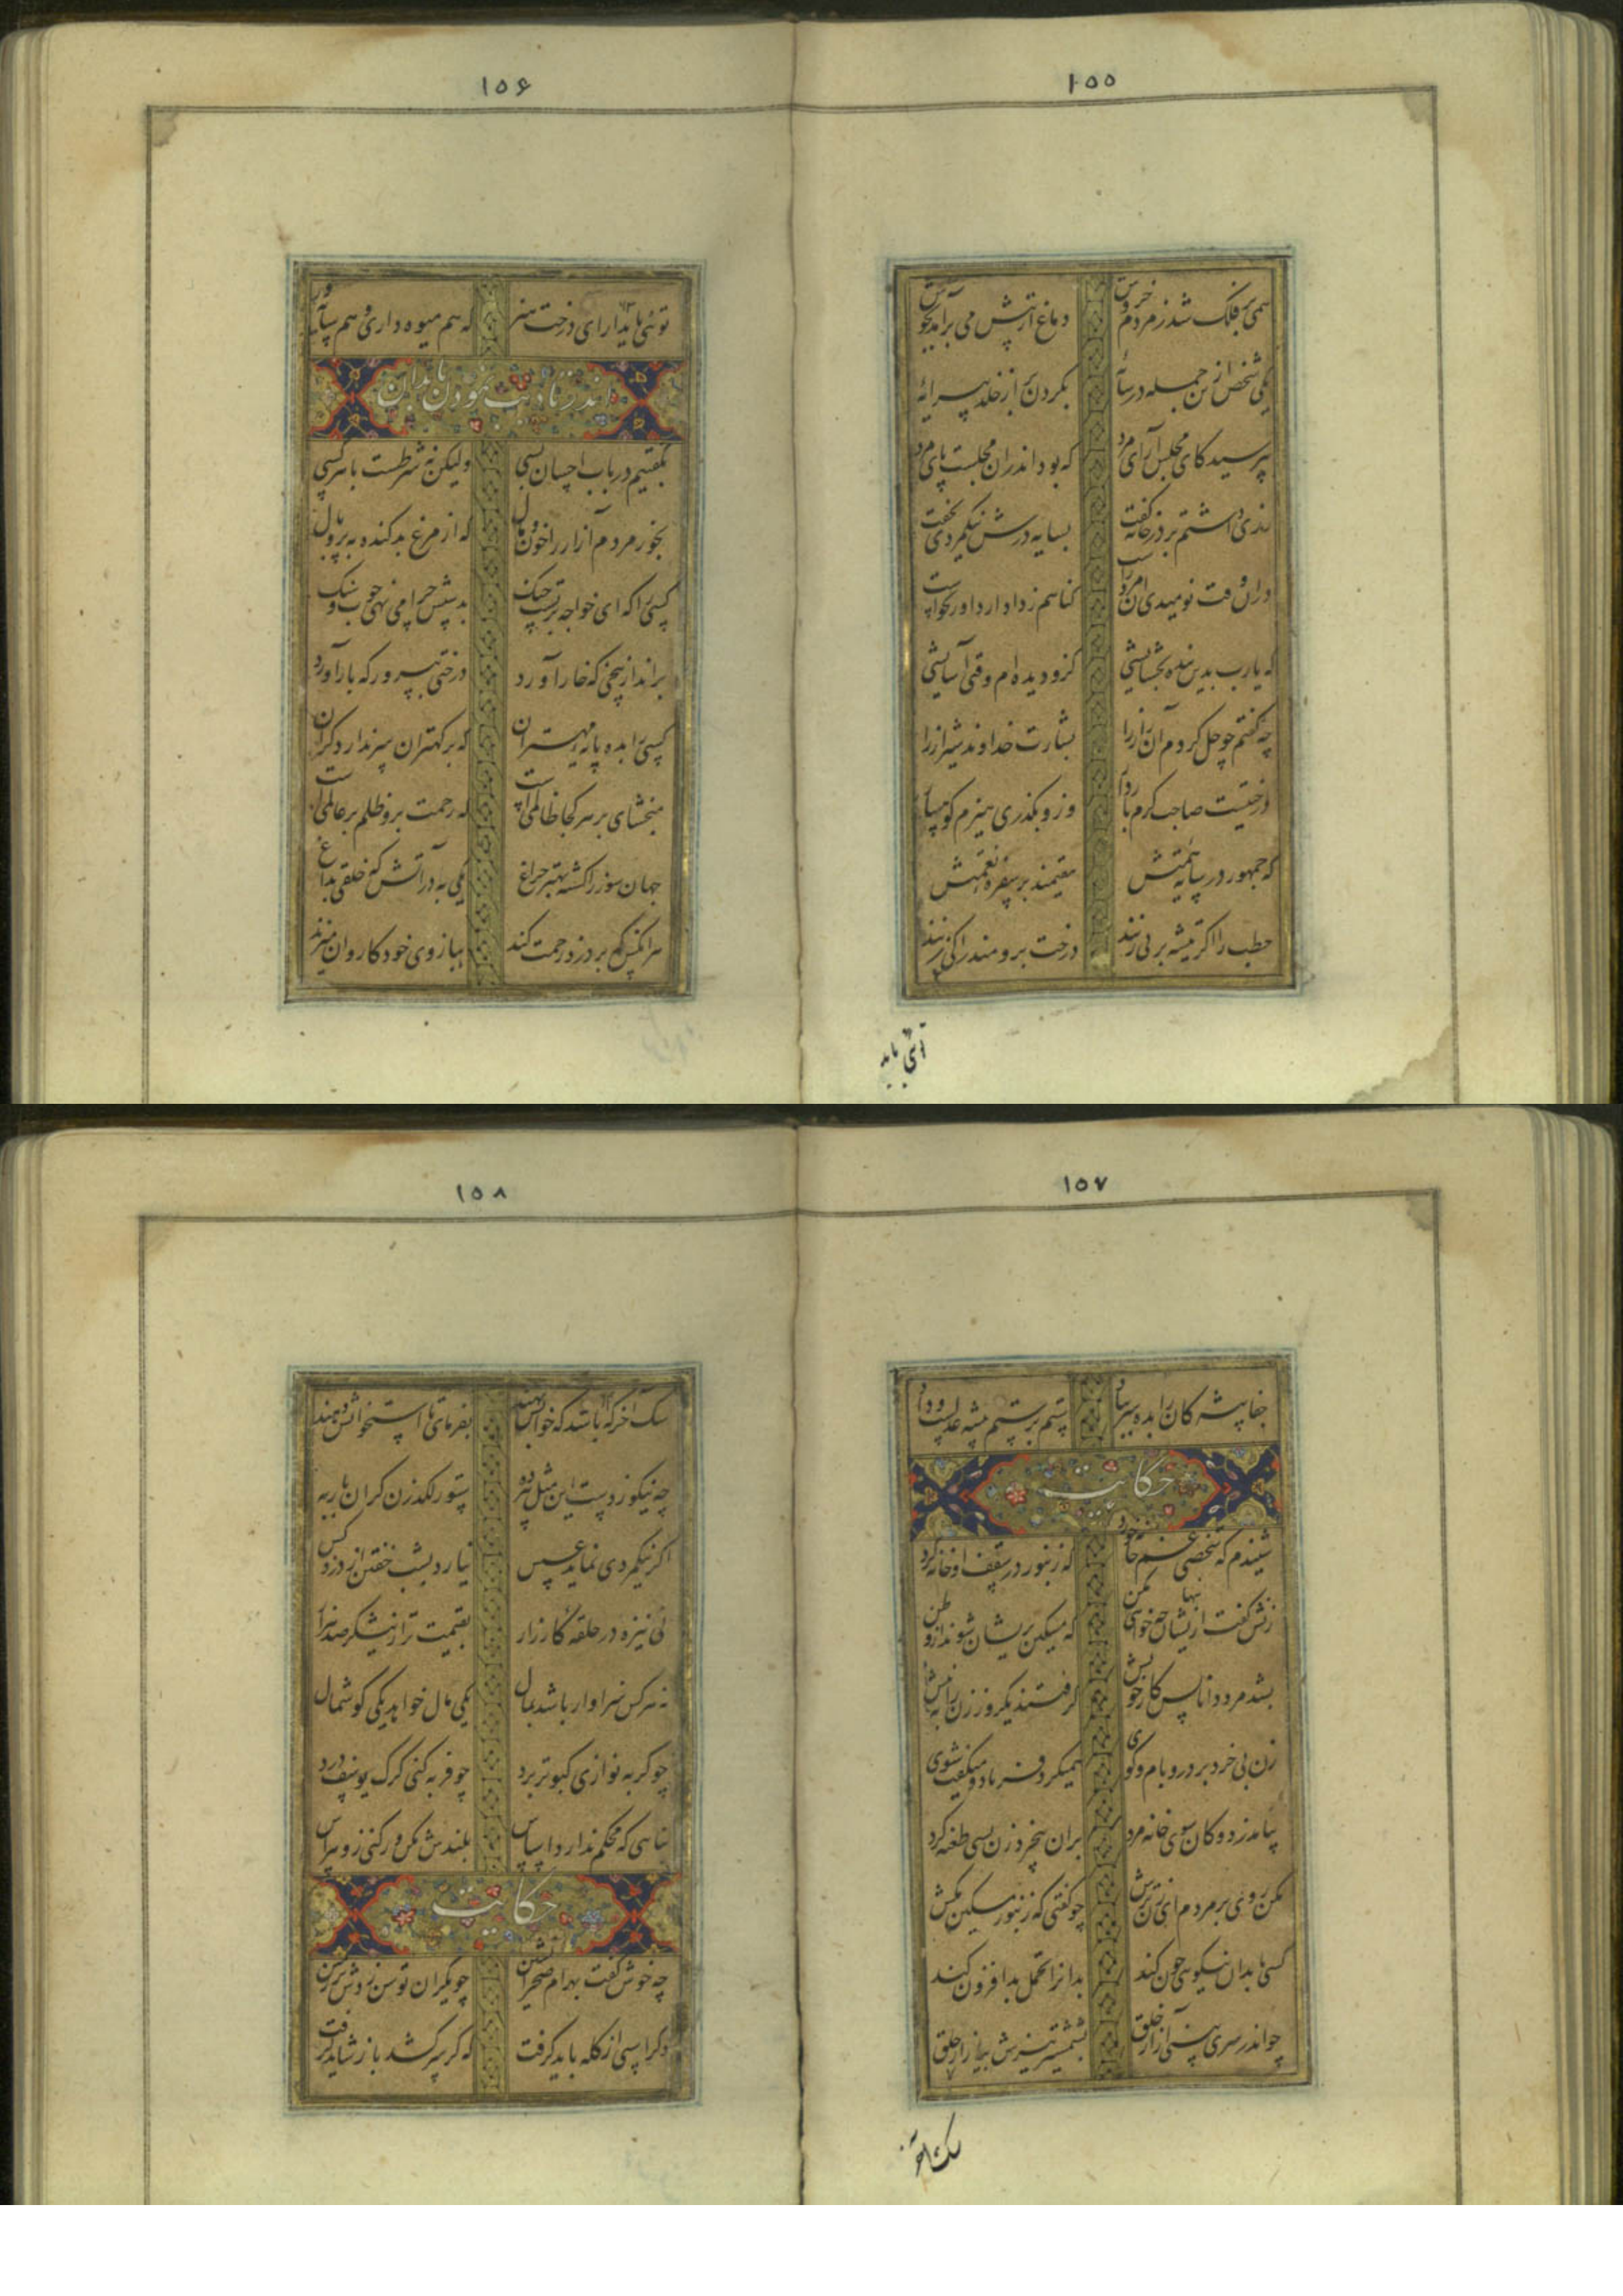 ۱۵۵
همی بر فلک شد ز مردم خروش دماغ از تپش می برآمد بجوش
یکی شخص ازین جمله در سایه بگردن بر از خلد پیرایه
بپرسید کای مجلس آرای مرد که بود اندران مجلست پای مرد
رزی داشتم بر در خانه گفت بسایه درش نیکمردی بخفت
دران وقت نومیدی آن مرد راست گناهم ز دادار داور بخواست
که یارب بدین بنده بخشایشی کزو دیده ام وقتی آسایشی
چه گفتم چو حل کردم آن راز را بشارت خداوند شیراز را
که جمهور در سایه همتش مقیمند بر سفره نعمتش
درختیست صاحب کرم باردار وزو بگذری هیزم کوهسار
حطب را اگر تیشه بر پی زنند درخت برومند را کی زنند
۱۵۶
توئی پایدار ای درخت هنر که هم میوه داری و هم سایه ور
اندر تادیب نمودن با بدان
بگفتیم در باب احسان بسی ولیکن نه شرطست با هر کسی
بخور مردم آزار را خون و مال که از مرغ بد کنده به پر و بال
کسی را که ای خواجه تست جنگ بدستش چرا می نهی چوب و سنگ
برانداز بیخی که خار آورد درختی بپرور که بار آورد
کسی را بده پایه مهتران که بر کهتران سر ندارد گران
مبخشای بر هر کجا ظالمیست که رحمت برو ظلم بر عالمیست
جهان سوز را کشته بهتر چراغ یکی به در آتش که خلقی بداغ
هر آنکس که بر دزد رحمت کند ببازوی خود کاروان میزند
۱۵۷
جفاپیشه کان را بده سر بباد ستم بر ستم پیشه عدلست و داد
حکایت
شنیدم که شخصی غم خانه خورد که زنبور در سقف او خانه کرد
زنش گفت ازیشان چه خواهی مکن که مسکین پریشان شوند از وطن
بشد مرد دانا پس کار خویش گرفتند یکروز زن را به نیش
زن بی خرد بر در و بام و کوی همیکرد فریاد و میگفت شوی
بیامد ز دوکان سوی خانه مرد بران بیخرد زن بسی طعنه کرد
مکن روی بر مردم ای زن ترش چو گفتی که زنبور مسکین مکش
کسی با بدان نیکویی چون کند بدانرا تحمل بد افزون کند
چو اندر سری بینی آزار خلق بشمشیر تیزش بیازار حلق
۱۵۸
سگ آخر که باشد که خوانش نهند بفرمای تا استخوانش دهند
چه نیکو زدست این مثل پیر ده ستور لگدزن گران بار به
اگر نیکمردی نماید عسس نیارد بشب خفتن از دزد کس
نی نیزه در حلقه کارزار بقیمت تر از نیشکر صد هزار
نه هر کس سزاوار باشد بمال یکی مال خواهد یکی گوشمال
چو گربه نوازی کبوتر برد چو فربه کنی گرگ یوسف درد
بنایی که محکم ندارد اساس بلندش مکن ور کنی زو هراس
حکایت
چه خوش گفت بهرام صحرانشین چو یکران توسن زدش بر زمین
دگر اسپی از گله باید گرفت که گر سر کشد باز شاید گرفت